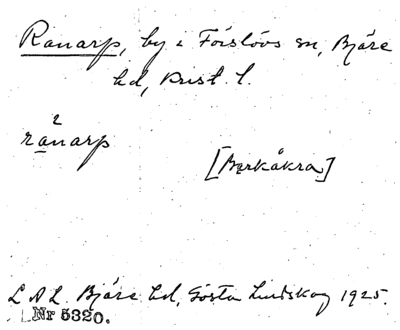 Ranarp, by i Förslövs sn, Bjäre
hd, Krist. l.
2
rånarp
[Barkåkra]
L A L. Bjäre hd, Gösta Lindskog 1925.
Nr 5320.